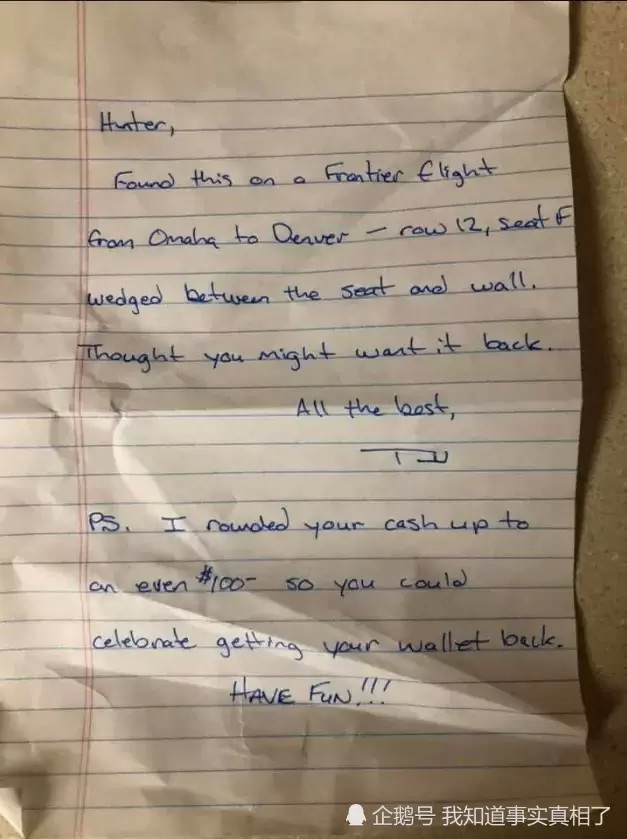 Hunter,
Found this on a Frontier flight
from Omaha to Denver – row 12, seat F
wedged between the seat and wall.
Thought you might want it back.
All the best,
TJ
PS. I rounded your cash up to
an even $100- so you could
celebrate getting your wallet back.
HAVE FUN!!!
企鹅号 我知道事实真相了